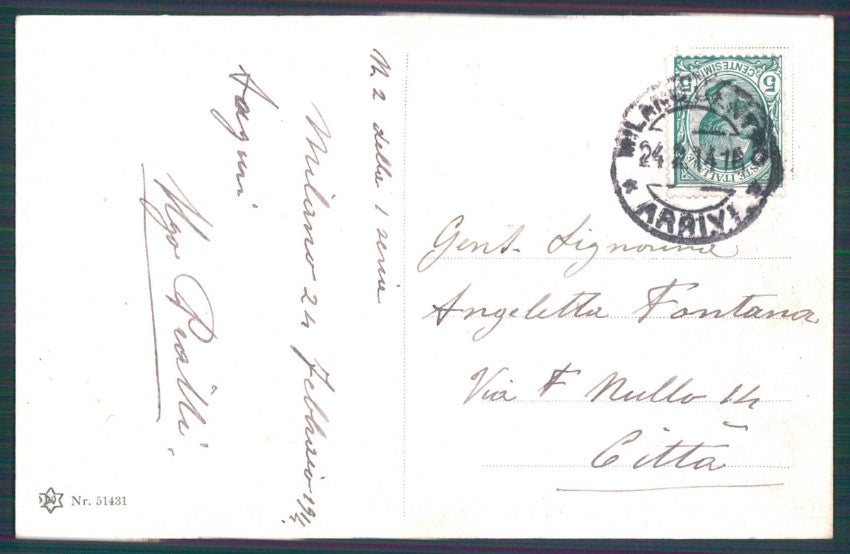 N. 2 della 1 serie
Milano 24 Febbraio 19
Auguri
Ugo
Gent. Signorina
Angeletta Fontana
Via F Nullo 14
Città
CENTESIMI
5 5
POSTE ITALIANE
MILANO CENTRO
24.2.14 18
* ARRIVI *
Nr. 51431